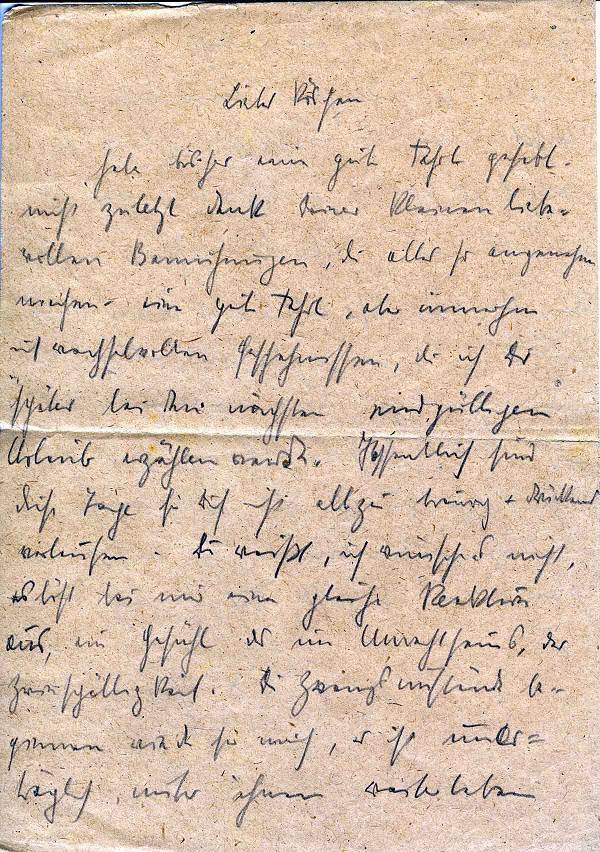 Liebes Röschen
habe bisher eine gute Fahrt gehabt.
nicht zuletzt dank Deiner kleinen liebe-
vollen Bemühungen, die alles so angenehm
machen - eine gute Fahrt, aber immerhin
mit wechselvollen Geschehnissen, die ich Dir
später bei dem nächsten endgültigen
Urlaub erzählen werde. Hoffentlich sind
diese Tage für Dich nicht allzu traurig + drückend
verlaufen. Du weißt, ich wünsche es nicht,
es löst bei mir eine gleiche Reaktion
aus, ein Gefühl des im Unrechtseins, der
Zwiespältigkeit. Die Zwangsumstände be-
ginnen wieder für mich, es ist uner-
träglich, unter ihnen weiterleben